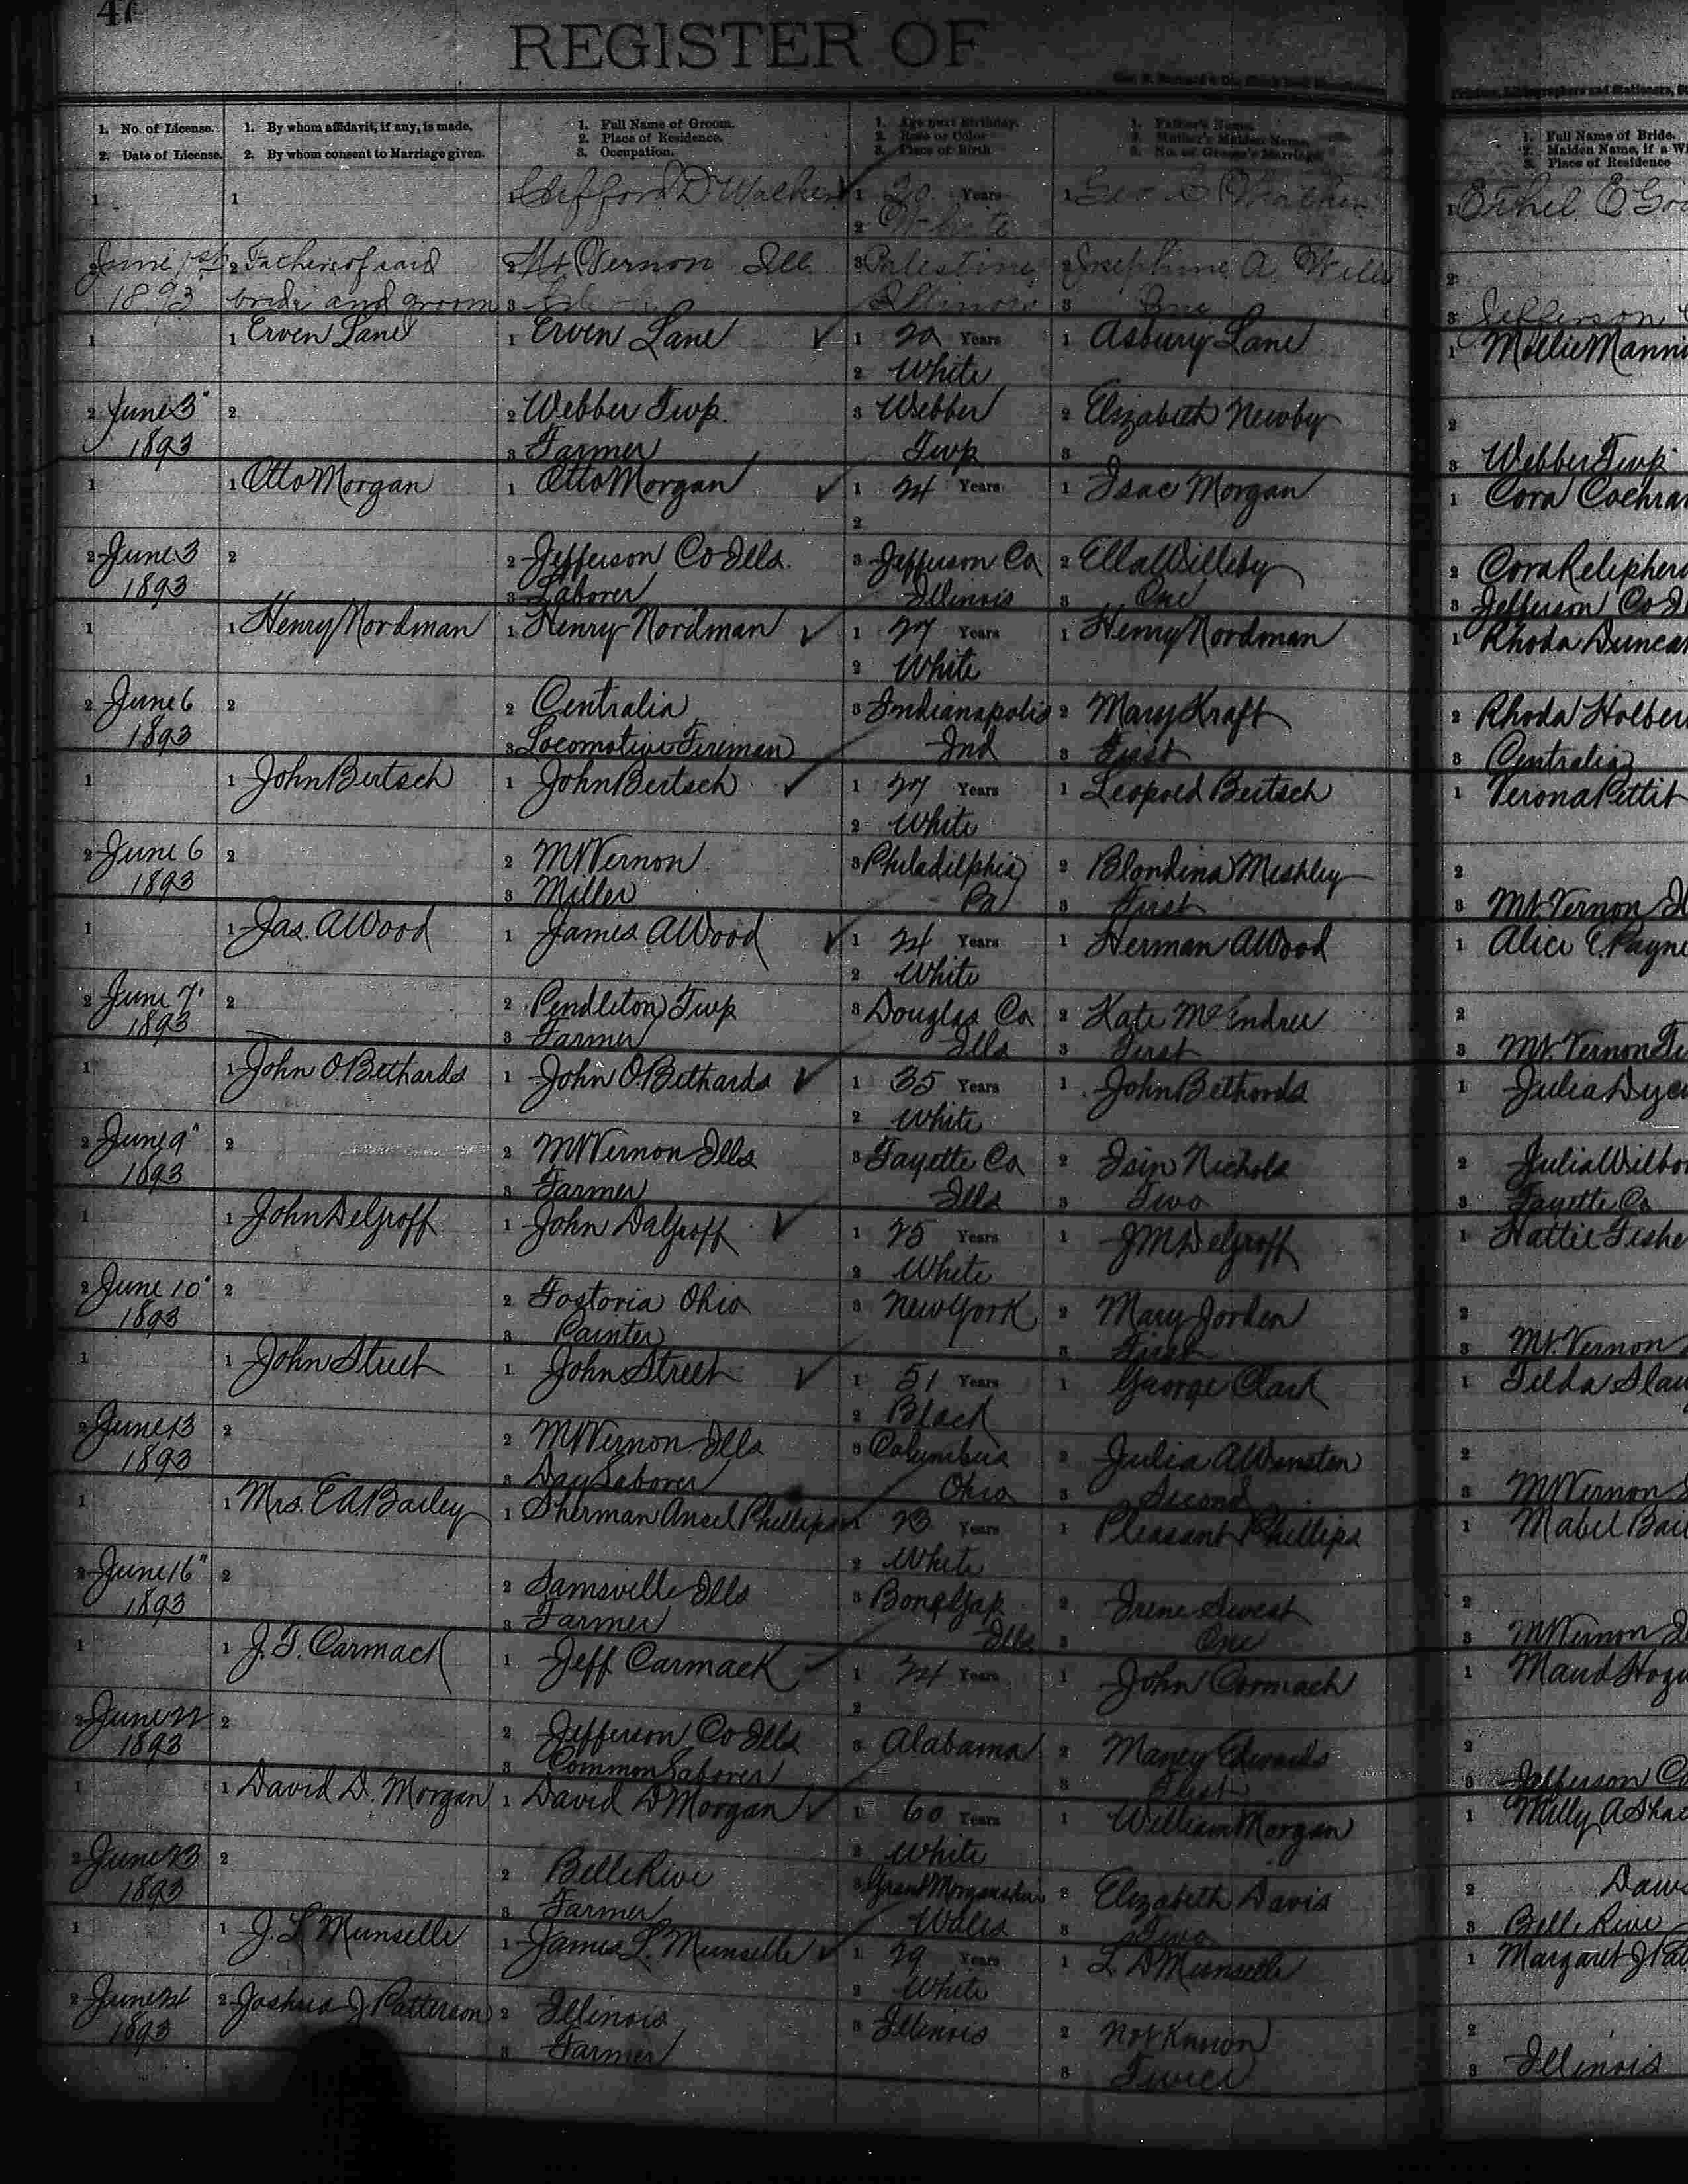 REGISTER OF
1. No. of License.
2. Date of License.
1. By whom affidavit, if any, is made.
2. By whom consent to Marriage given.
1. Full Name of Groom.
2. Place of Residence.
3. Occupation.
1. Age next Birthday.
2. Race or Color
3. Place of Birth
1. Father's Name.
2. Mother's Maiden Name.
3. No. of Groom's Marriage
1. Full Name of Bride.
2. Maiden Name, if a Wi
3. Place of Residence
1 1 1 Clifford D Walker 1 20 Years 1 Geo C Walker 1 Ethel E Goo
2 White
2 June 1st 2 Fathers of said 2 Mt Vernon Ill 3 Palestine 2 Josephine A Wills 2
1893 bride and groom 3 Illinois 3 One 3 Jefferson
1 1 Erven Lane 1 Erven Lane 1 20 Years 1 Asbury Lane 1 Mollie Manni
2 White
2 June 3" 2 2 Webber Twp. 3 Webber 2 Elizabeth Newby 2
1893 3 Farmer Twp 3 3 Webber Twp
1 1 Otto Morgan 1 Otto Morgan 1 24 Years 1 Isac Morgan 1 Cora Cochran
2
2 June 3 2 2 Jefferson Co Ills. 3 Jefferson Co 2 Ella Willeby 2 Cora
1893 3 Laborer Illinois 3 One 3 Jefferson Co Il
1 1 Henry Nordman 1 Henry Nordman 1 27 Years 1 Henry Nordman 1 Rhoda Duncan
2 White
2 June 6 2 2 Centralia 3 Indianapolis 2 Mary Kraft 2 Rhoda Holber
1893 3 Locomotive Fireman Ind 3 First 3 Centralia
1 1 John Bertsch 1 John Bertsch 1 27 Years 1 Leopold Bertsch 1 Verona Pettit
2 White
2 June 6 2 2 Mt Vernon 3 Philadelphia 2 Blondina Meshley 2
1893 3 Miller Pa 3 First 3 Mt. Vernon Il
1 1 Jas. A Wood 1 James A Wood 1 24 Years 1 Herman A Wood 1 Alice E Payne
2 White
2 June 7" 2 2 Pendleton Twp 3 Douglas Co 2 Kate McEndree 2
1893 3 Farmer Ills 3 First 3 Mt. Vernon
1 1 John O. Bethards 1 John O. Bethards 1 35 Years 1 John Bethords 1 Julia Dye
2 White
2 June 9" 2 2 Mt Vernon Ills 3 Fayette Co 2 Isin Nichols 2 Julia Wilbo
1893 3 Farmer Ills 3 Two 3 Fayette Co
1 1 John DeGroff 1 John DaGroff 1 25 Years 1 J M DeGroff 1 Hattie Fishe
2 White
2 June 10" 2 2 Fostoria Ohio 3 New York 2 Mary Jorden 2
1893 3 Painter 3 First 3 Mt. Vernon
1 1 John Street 1 John Street 1 51 Years 1 George Clark 1 Tilda Slau
2 Black
2 June 13 2 2 Mt Vernon Ills 3 Columbus 2 Julia A Winston 2
1893 3 Day Laborer Ohio 3 Second 3 Mt Vernon
1 1 Mrs. E A. Bailey 1 Sherman Ansel Phillips 1 23 Years 1 Pleasant Phillips 1 Mabel Bail
2 White
2 June 16" 2 2 Samsville Ills 3 Bone Gap 2 Irene Swest 2
1893 3 Farmer Ills 3 One 3 Mt Vernon Il
1 1 J. T. Carmack 1 Jeff Carmack 1 24 Years 1 John Cormach 1 Maud Hogu
2
2 June 22 2 2 Jefferson Co Ills 3 Alabama 2 Maney Edwards 2
1893 3 Common Laborer 3 First 3 Jefferson Co
1 1 David D. Morgan 1 David D Morgan 1 60 Years 1 William Morgan 1 Milly A Sha
2 White
2 June 23 2 2 Belle Rive 3 2 Elizabeth Davis 2 Daws
1893 3 Farmer Wales 3 Two 3 Belle Rive
1 1 J. L Munselle 1 James L. Munselle 1 29 Years 1 L D Munselle 1 Margaret J Pat
2 White
2 June 24 2 Joshua J Patterson 2 Illinois 3 Illinois 2 Not Known 2
1893 3 Farmer 3 Twice 3 Illinois